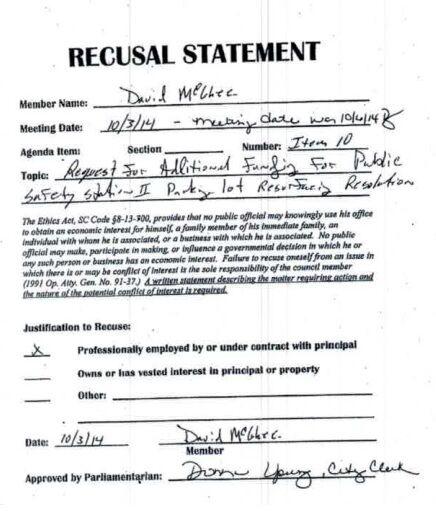 RECUSAL STATEMENT
Member Name: David McGhee
Meeting Date: 10/3/14 - meeting date was 10/6/14
Agenda Item: Section ______ Number: Item 10
Topic: Request For Additional Funding For Public
Safety Station II Parking lot Resurfacing Resolution
The Ethics Act, SC Code §8-13-700, provides that no public official may knowingly use his office
to obtain an economic interest for himself, a family member of his immediate family, an
individual with whom he is associated, or a business with which he is associated. No public
official may make, participate in making, or influence a governmental decision in which he or
any such person or business has an economic interest. Failure to recuse oneself from an issue in
which there is or may be conflict of interest is the sole responsibility of the council member
(1991 Op. Atty. Gen. No. 91-37.) A written statement describing the matter requiring action and
the nature of the potential conflict of interest is required.
Justification to Recuse:
X Professionally employed by or under contract with principal
____ Owns or has vested interest in principal or property
____ Other: ______
Date: 10/3/14 David McGhee
Member
Approved by Parliamentarian: Donna Young, City Clerk